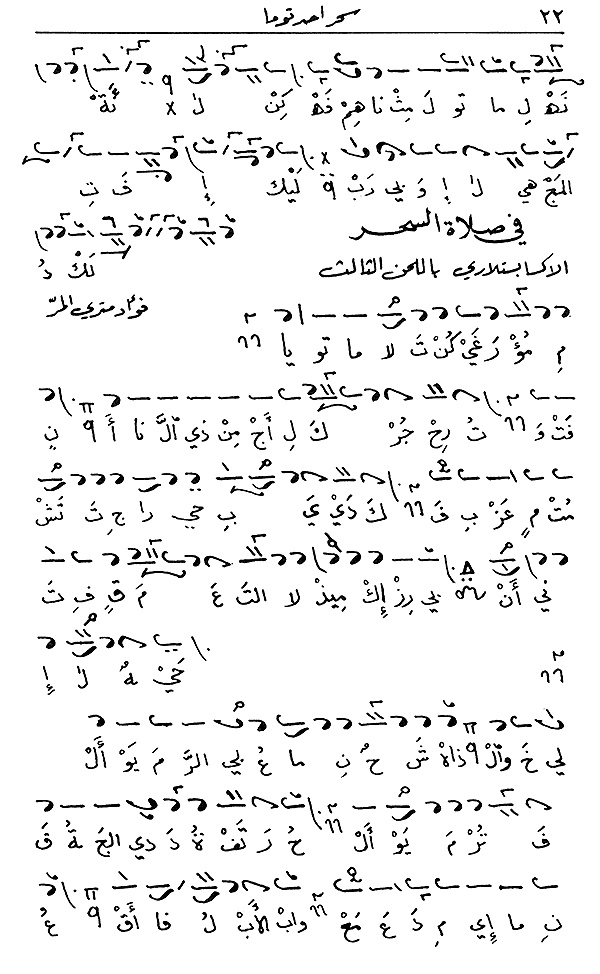 ٢٢ سحر احد توما
نَهْ لِ ما تو لَ مِثْ ناهِمْ فَهْ كِنْ لا نَّةْ
المَعْ هي لا إ وَ بي رَبْ لَيْك إِ فَ تِ
في صلاة السحر
لَكْ دُ
الاكسابستلاري باللحن الثالث
فؤاد متري المرّ
مِ مُؤْ رَ غَيْ كُنْ تَ لا ما تو يا
فَتْ وَ تُ رِحْ جُرْ كَ لِ أَجْ مِنْ ذي الَّ نا أَ نِ
مُتْ مِ عَزْ بِ فَ كَ دَيْ يَ بِ حي را جِ تَ تَشْ
ني أَنْ بي رِزْ إِكْ مِيذْ لا التَ عَ مَ قِ فِ تَ
حَيْ هُ لا إِ
لي خَ والْ ذاهْ شَ حُ نِ ما عُ بي الرَّ مَ يَوْ أَلْ
فَ تُرْ مَ يَوْ أَلْ حُ رَ تَفْ ةُ دَ دي الجَ قَ
نِ ما إي مِ دَ عَ مَعْ وابْ الأَبْ لُ فا أَقْ عُ